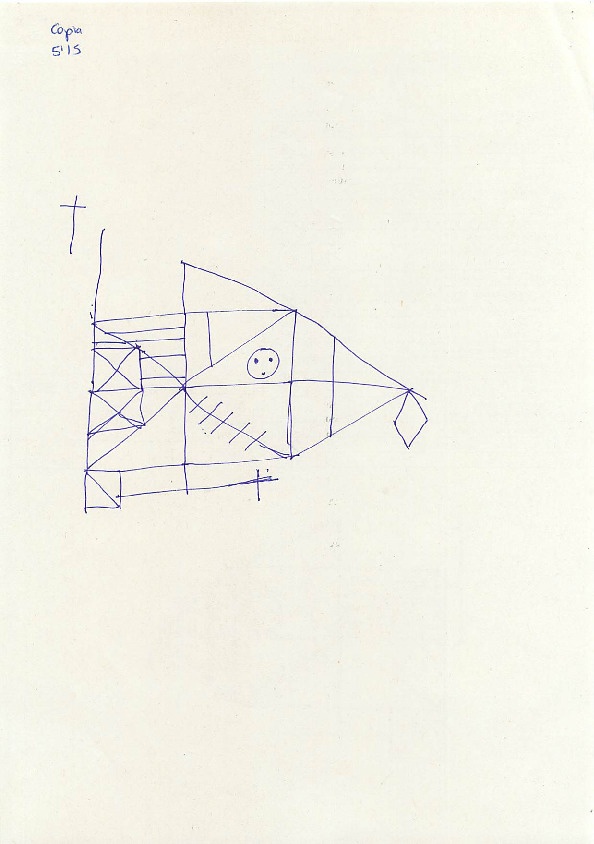 Copia
5'15